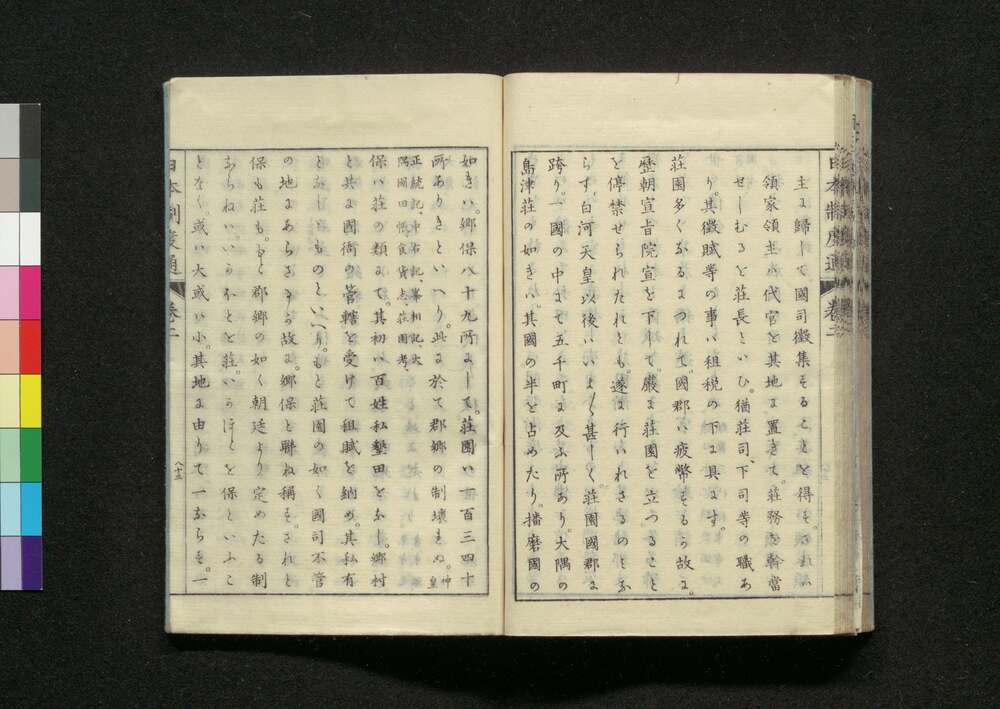 主に歸して國司徵集することを得ず。されバ
領家領主ハ代官を其地に置きて。莊務を幹當
せしむるを莊長といひ。猶莊司、下司等の職あ
り。其徵賦等の事ハ租税の下に具ます。
莊園多くなるにつれて。國郡ハ疲幣せるが故に。
歷朝宣旨院宣を下して。嚴に莊園を立つること
を停禁せられたれとも。遂に行ハれざるのとな
らず。白河天皇以後ハいよ〱甚しく。莊園國郡に
跨り。一國の中にて五千町に及ぶ所あり。大隅の
島津莊の如きハ。其國の半を占めたり。播磨國の
如きハ。鄉保八十九所にして。莊園ハ一百三四十
所ありきといへり。此に於て郡鄉の制壞せぬ。神皇
正統記、中右記、峯相記、大
隅國田帳、食貨志、莊園考。
保ハ莊の類にて。其初ハ百姓私墾田となし。鄉村
と共に國衙の管轄を受けて租賦を納め。其私有
となしゝものといへり。もと莊園の如く國司不管
の地にあらざるが故に。鄉保と聯ね稱す。されど
保も莊も。もと郡鄉の如く朝廷より定めたる制
ならねバ。いかなとを莊。いかほとを保といふこ
となく或ハ大或ハ小。其地に由りて一ならず。一
日本制度通
卷二
八十三